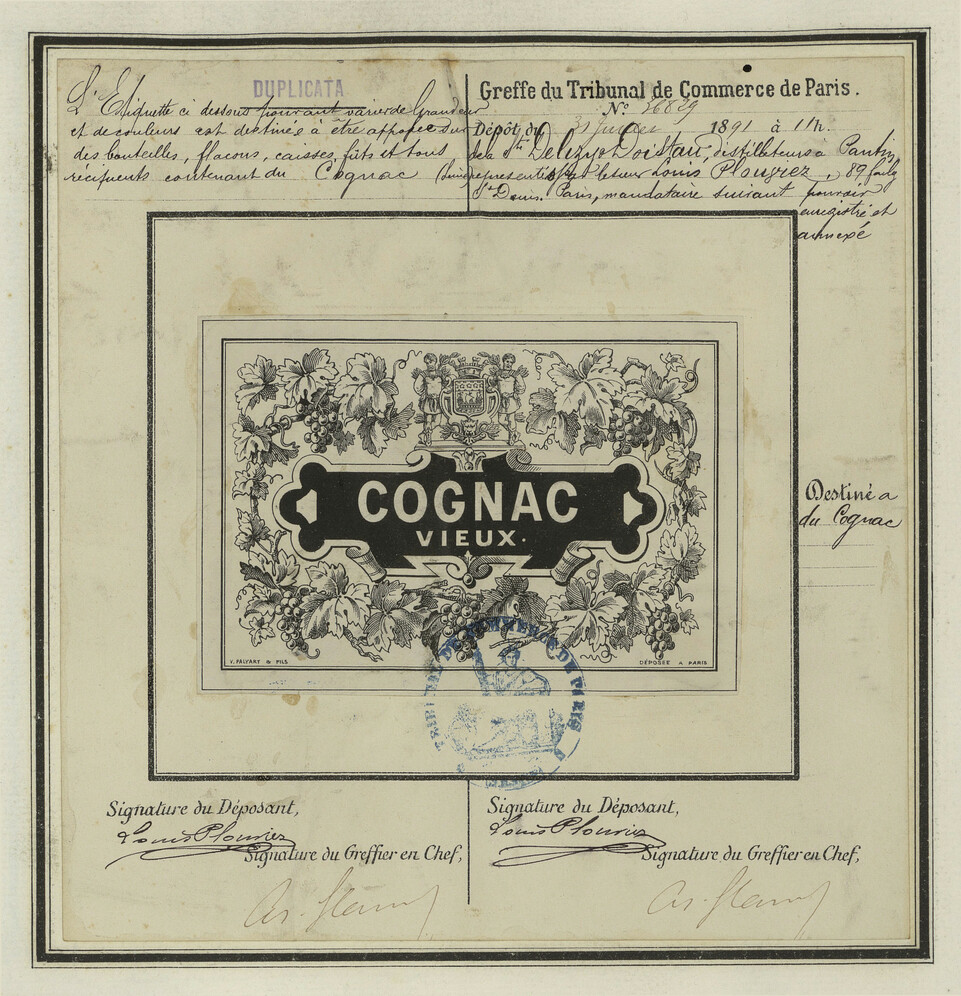 DUPLICATA
L'Etiquette ci dessous pouvant varier de Grandeur
et de couleurs est destinée à être apposée sur
des bouteilles, flacons, caisses, fûts et tous
récipients contenant du Cognac
Greffe du Tribunal de Commerce de Paris.
N° 36829
Dépôt du 31 1891 à 11h.
de la Sté Delizy & Doistau, distillateurs à Pantin
représentés par le sieur Louis Plougrez, 89 faubg
St Denis. Paris, mandataire suivant pouvoir
enregistré et
annexé
COGNAC
VIEUX.
V. PALYART & FILS
DÉPOSÉE A PARIS
Destiné a
du Cognac
TRIBUNAL DE COMMERCE DE PARIS
Signature du Déposant,
Louis Plouviez
Signature du Greffier en Chef,
Signature du Déposant,
Louis Plouviez
Signature du Greffier en Chef,